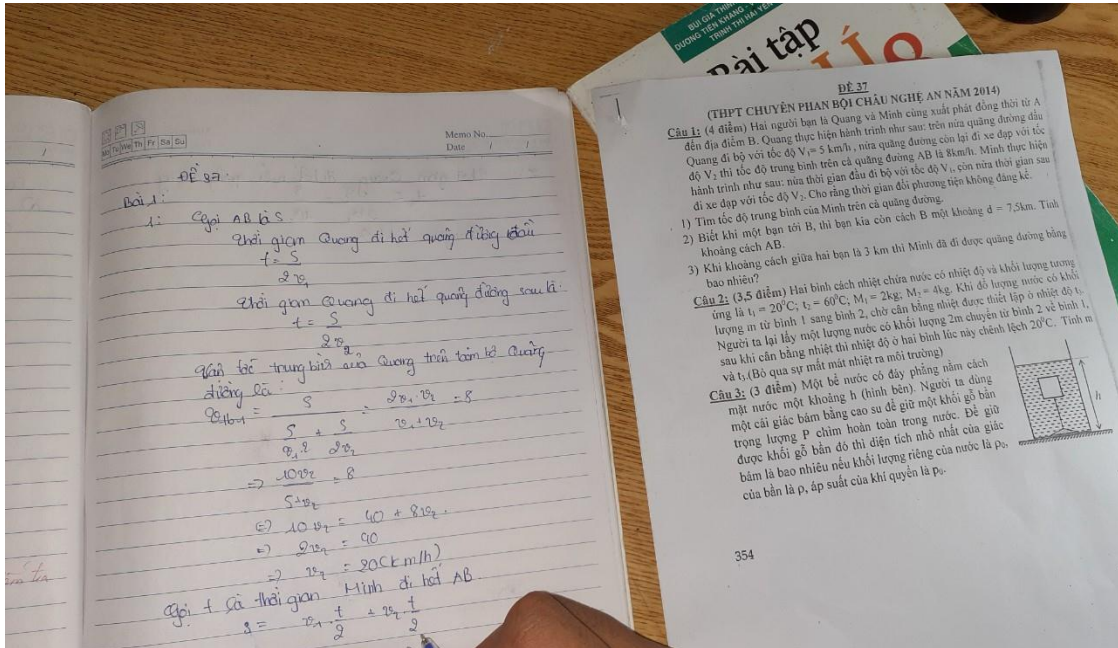 BÙI GIA THỊNH
DƯƠNG TIẾN KHANG
TRỊNH THỊ HẢI YẾN
Bài tập
LÍ
Mo Tu We Th Fr Sa Su
Memo No.
Date / /
ĐỀ 37
Bài 1:
1: Gọi AB là S
Thời gian Quang đi hết quãng đường đầu
t = S
2v₁
Thời gian Quang đi hết quãng đường sau là:
t = S
2v₂
Vận tốc trung bình của Quang trên toàn bộ quãng
đường là:
= S / (S/v₁2 + S/2v₂) = 2v₁.v₂ / (v₁+v₂) = 8
=> 10v₂ / (5+v₂) = 8
<=> 10v₂ = 40 + 8v₂.
=> 2v₂ = 40
=> v₂ = 20(km/h)
Gọi t là thời gian Minh đi hết AB
s = v₁.t/2 + v₂.t/2
ĐỀ 37
(THPT CHUYÊN PHAN BỘI CHÂU NGHỆ AN NĂM 2014)
Câu 1: (4 điểm) Hai người bạn là Quang và Minh cùng xuất phát đồng thời từ A
đến địa điểm B. Quang thực hiện hành trình như sau: trên nửa quãng đường đầu
Quang đi bộ với tốc độ V₁= 5 km/h, nửa quãng đường còn lại đi xe đạp với tốc
độ V₂ thì tốc độ trung bình trên cả quãng đường AB là 8km/h. Minh thực hiện
hành trình như sau: nửa thời gian đầu đi bộ với tốc độ V₁, còn nửa thời gian sau
đi xe đạp với tốc độ V₂. Cho rằng thời gian đổi phương tiện không đáng kể.
1) Tìm tốc độ trung bình của Minh trên cả quãng đường.
2) Biết khi một bạn tới B, thì bạn kia còn cách B một khoảng d = 7,5km. Tính
khoảng cách AB.
3) Khi khoảng cách giữa hai bạn là 3 km thì Minh đã đi được quãng đường bằng
bao nhiêu?
Câu 2: (3,5 điểm) Hai bình cách nhiệt chứa nước có nhiệt độ và khối lượng tương
ứng là t₁ = 20°C; t₂ = 60°C; M₁ = 2kg; M₂ = 4kg. Khi đổ lượng nước có khối
lượng m từ bình 1 sang bình 2, chờ cân bằng nhiệt được thiết lập ở nhiệt độ t₃.
Người ta lại lấy một lượng nước có khối lượng 2m chuyển từ bình 2 về bình 1,
sau khi cân bằng nhiệt thì nhiệt độ ở hai bình lúc này chênh lệch 20°C. Tính m
và t₃.(Bỏ qua sự mất mát nhiệt ra môi trường)
Câu 3: (3 điểm) Một bể nước có đáy phẳng nằm cách
mặt nước một khoảng h (hình bên). Người ta dùng
một cái giác bám bằng cao su để giữ một khối gỗ bần
trọng lượng P chìm hoàn toàn trong nước. Để giữ
được khối gỗ bần đó thì diện tích nhỏ nhất của giác
bám là bao nhiêu nếu khối lượng riêng của nước là ρ₀,
của bần là ρ, áp suất của khí quyển là p₀.
h
354